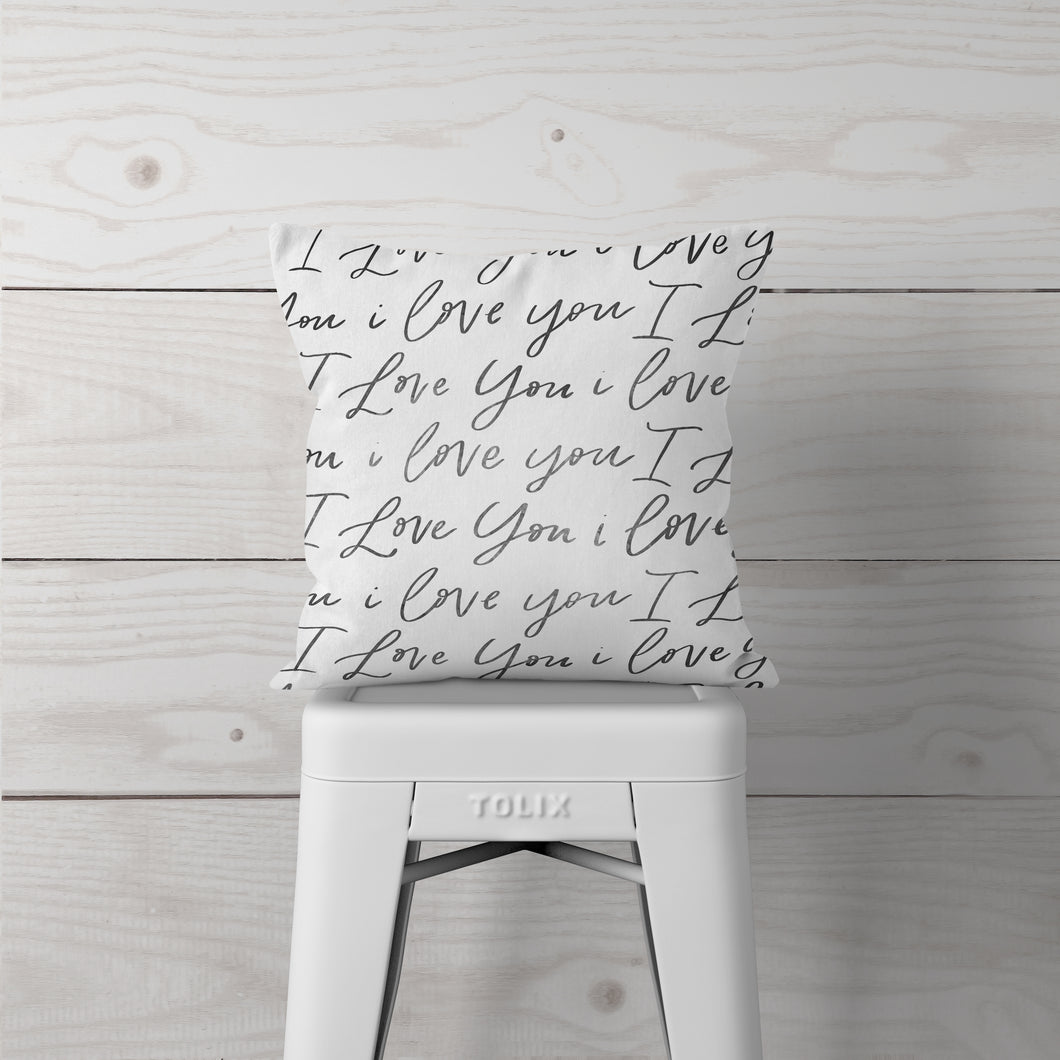 I Love You i love y
You i love you I L
I Love You i love
ou i love you I L
I Love You i love
u i love you I L
I Love You i love y
TOLIX